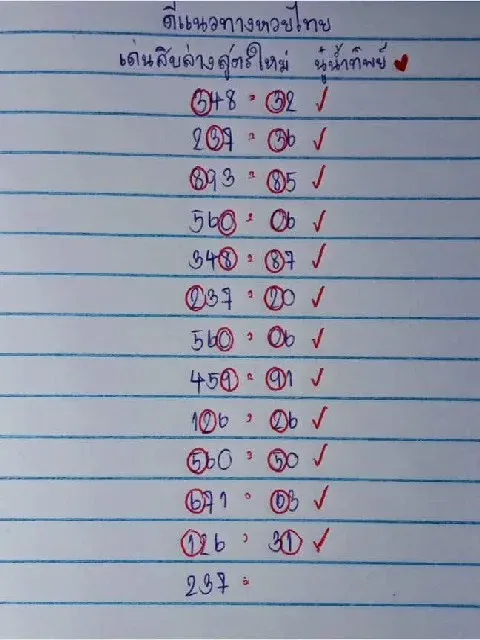 ดีแนวทางหวยไทย
เด่นสิบล่างสูตรใหม่ นู๋น้ำทิพย์
348 : 32 ✓
237 : 36 ✓
893 : 85 ✓
560 : 06 ✓
348 : 87 ✓
237 : 20 ✓
560 : 06 ✓
459 : 91 ✓
126 : 26 ✓
560 : 50 ✓
671 : 63 ✓
126 : 31 ✓
237 :